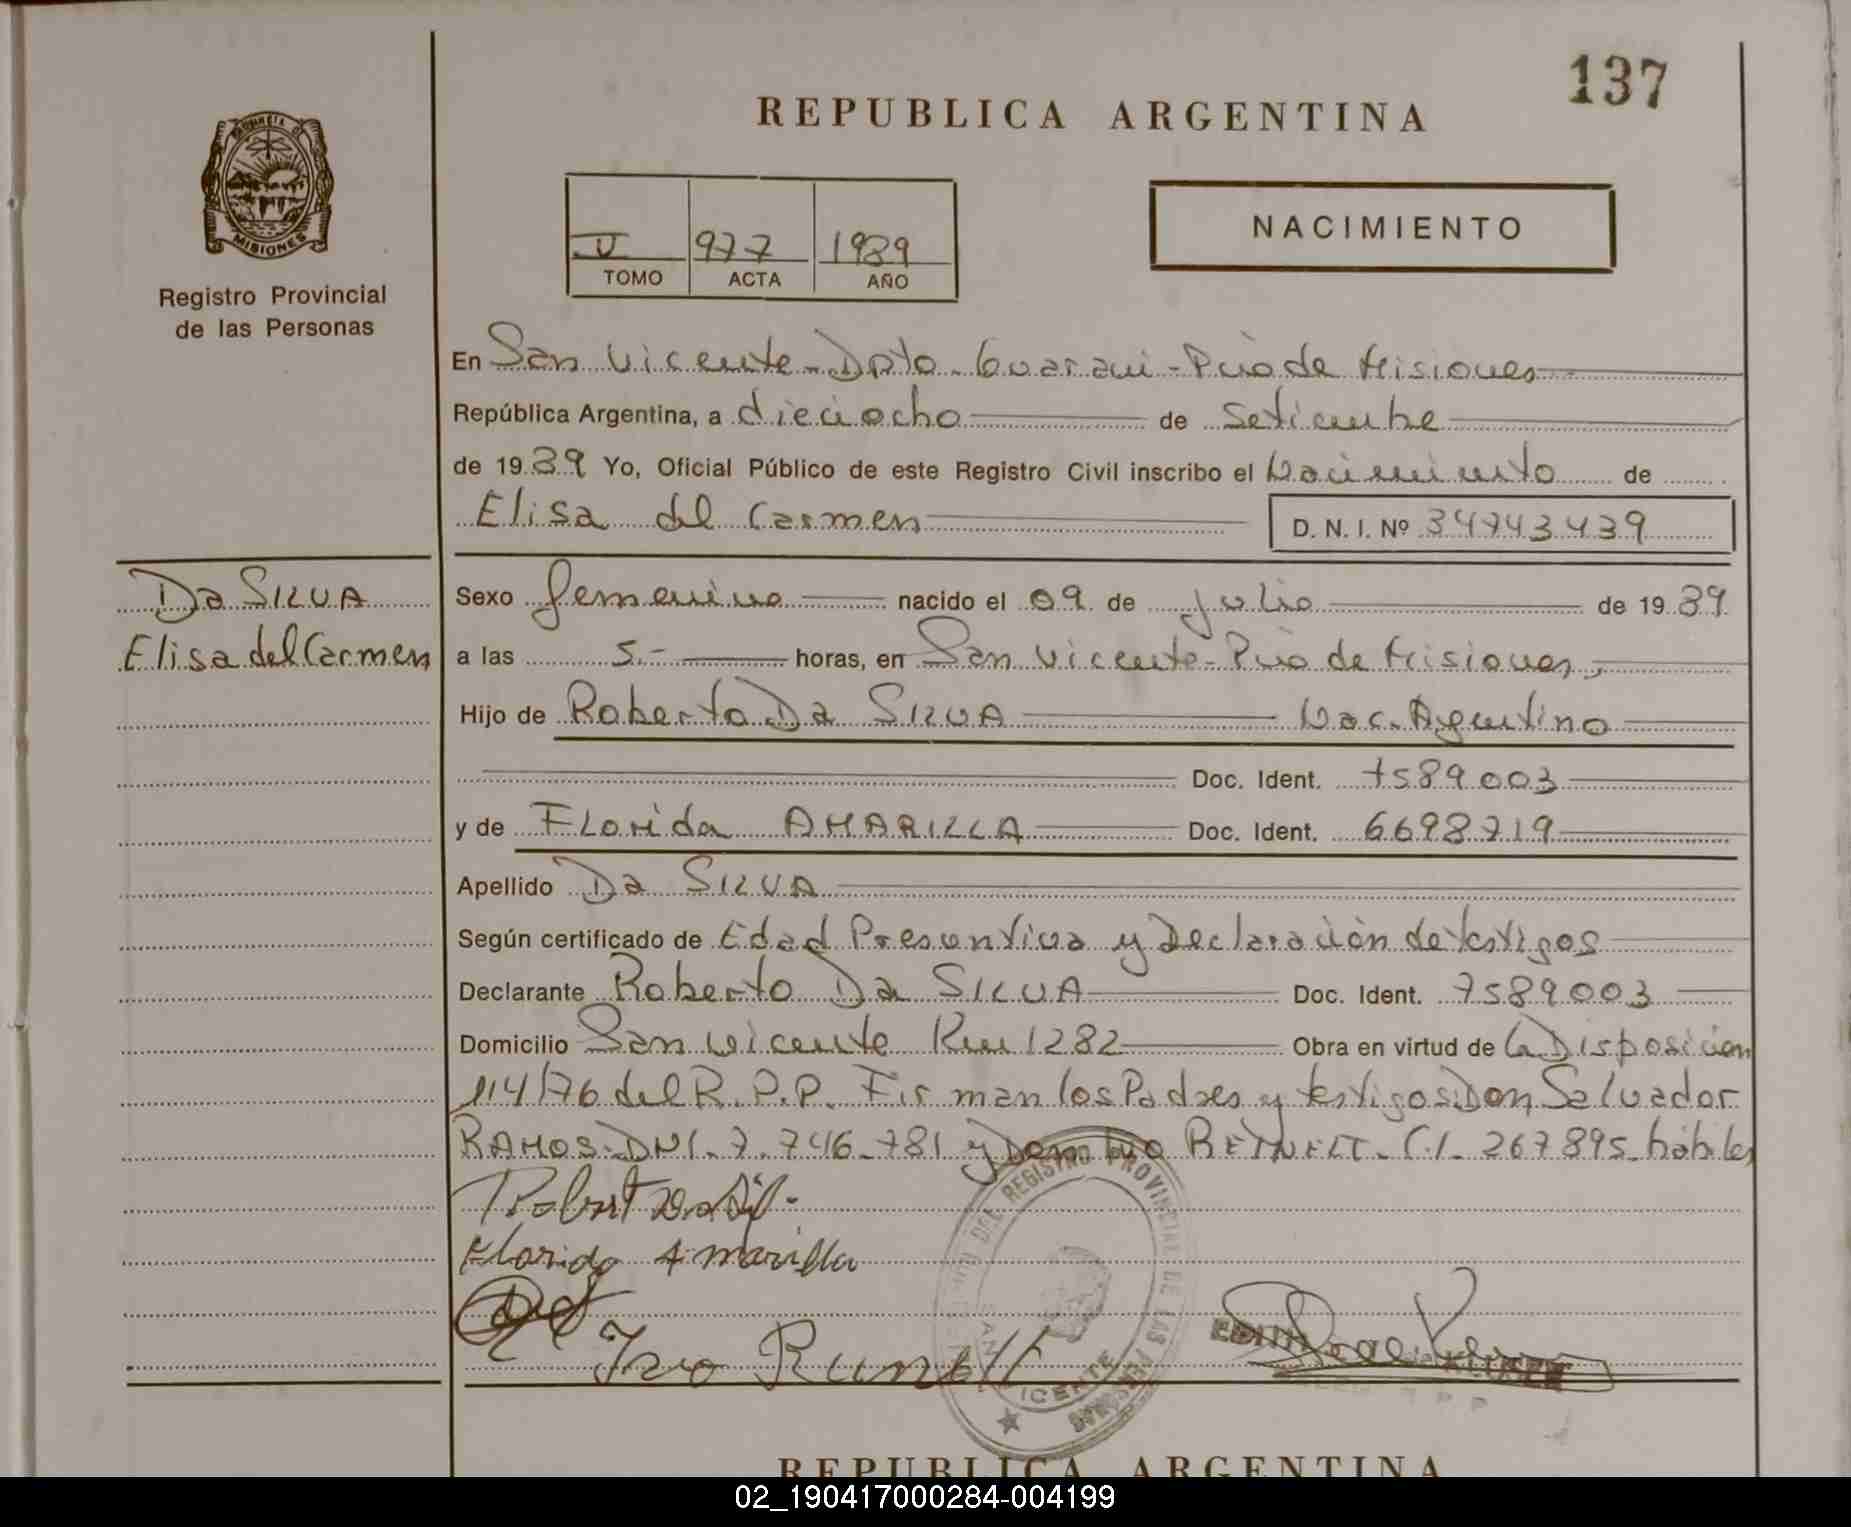 137
REPUBLICA ARGENTINA
PROVINCIA DE
MISIONES
Registro Provincial
de las Personas
V 977 1989
TOMO ACTA AÑO
NACIMIENTO
En San Vicente - Dpto. Guarani - Pcia de Misiones
República Argentina, a dieciocho de Setiembre
de 1989 Yo, Oficial Público de este Registro Civil inscribo el Nacimiento de
Elisa del Carmen D. N. I. Nº 34743439
Da SILVA
Elisa del Carmen
Sexo femenino nacido el 09 de julio de 1989
a las 5.- horas, en San Vicente - Pcia de Misiones,
Hijo de Roberto Da SILVA Nac. Argentino
Doc. Ident. 7589003
y de FLorida AMARILLA Doc. Ident. 6698719
Apellido Da SILVA
Según certificado de Edad Presuntiva y Declaración de testigos
Declarante Roberto Da SILVA Doc. Ident. 7589003
Domicilio San Vicente Km 1282 Obra en virtud de la Disposicion
114/76 del R.P.P. Firman los Padres y testigos: Don Salvador
RAMOS - DNI. 7.746.781 y Don Ivo C.I. 267895 hábiles
Florida Amarilla
Ivo
REGISTRO PROVINCIAL DE LAS PERSONAS
SAN VICENTE
EDITH
REPUBLICA ARGENTINA
02_190417000284-004199